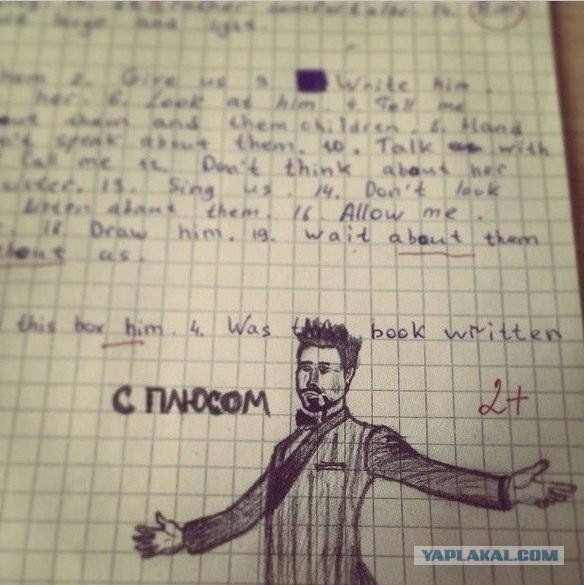 huge and light.
2. Give us 3. Write him.
her. 6. Look at him. 7. Tell me
them and them children. 8. Hand
speak about them. 10. Talk with
call me 12. Don't think about her
sister. 13. Sing us. 14. Don't look
about them. 16. Allow me.
18. Draw him. 19. wait about them
about us.
this box him. 4. Was book written
С ПЛЮСОМ
2+
YAPLAKAL.COM